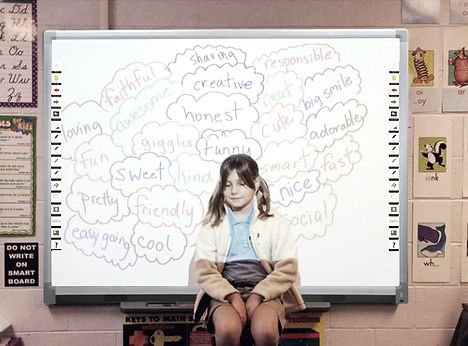 sharing
responsible
faithful
creative
neat
big smile
awesome
honest
cute
adorable
loving
giggles
funny
fun
sweet
kind
smart
fast
nice
pretty
friendly
social
easy going
cool
DO NOT
WRITE ON
SMART
BOARD
KEYS TO MATH
oi
oy
wh